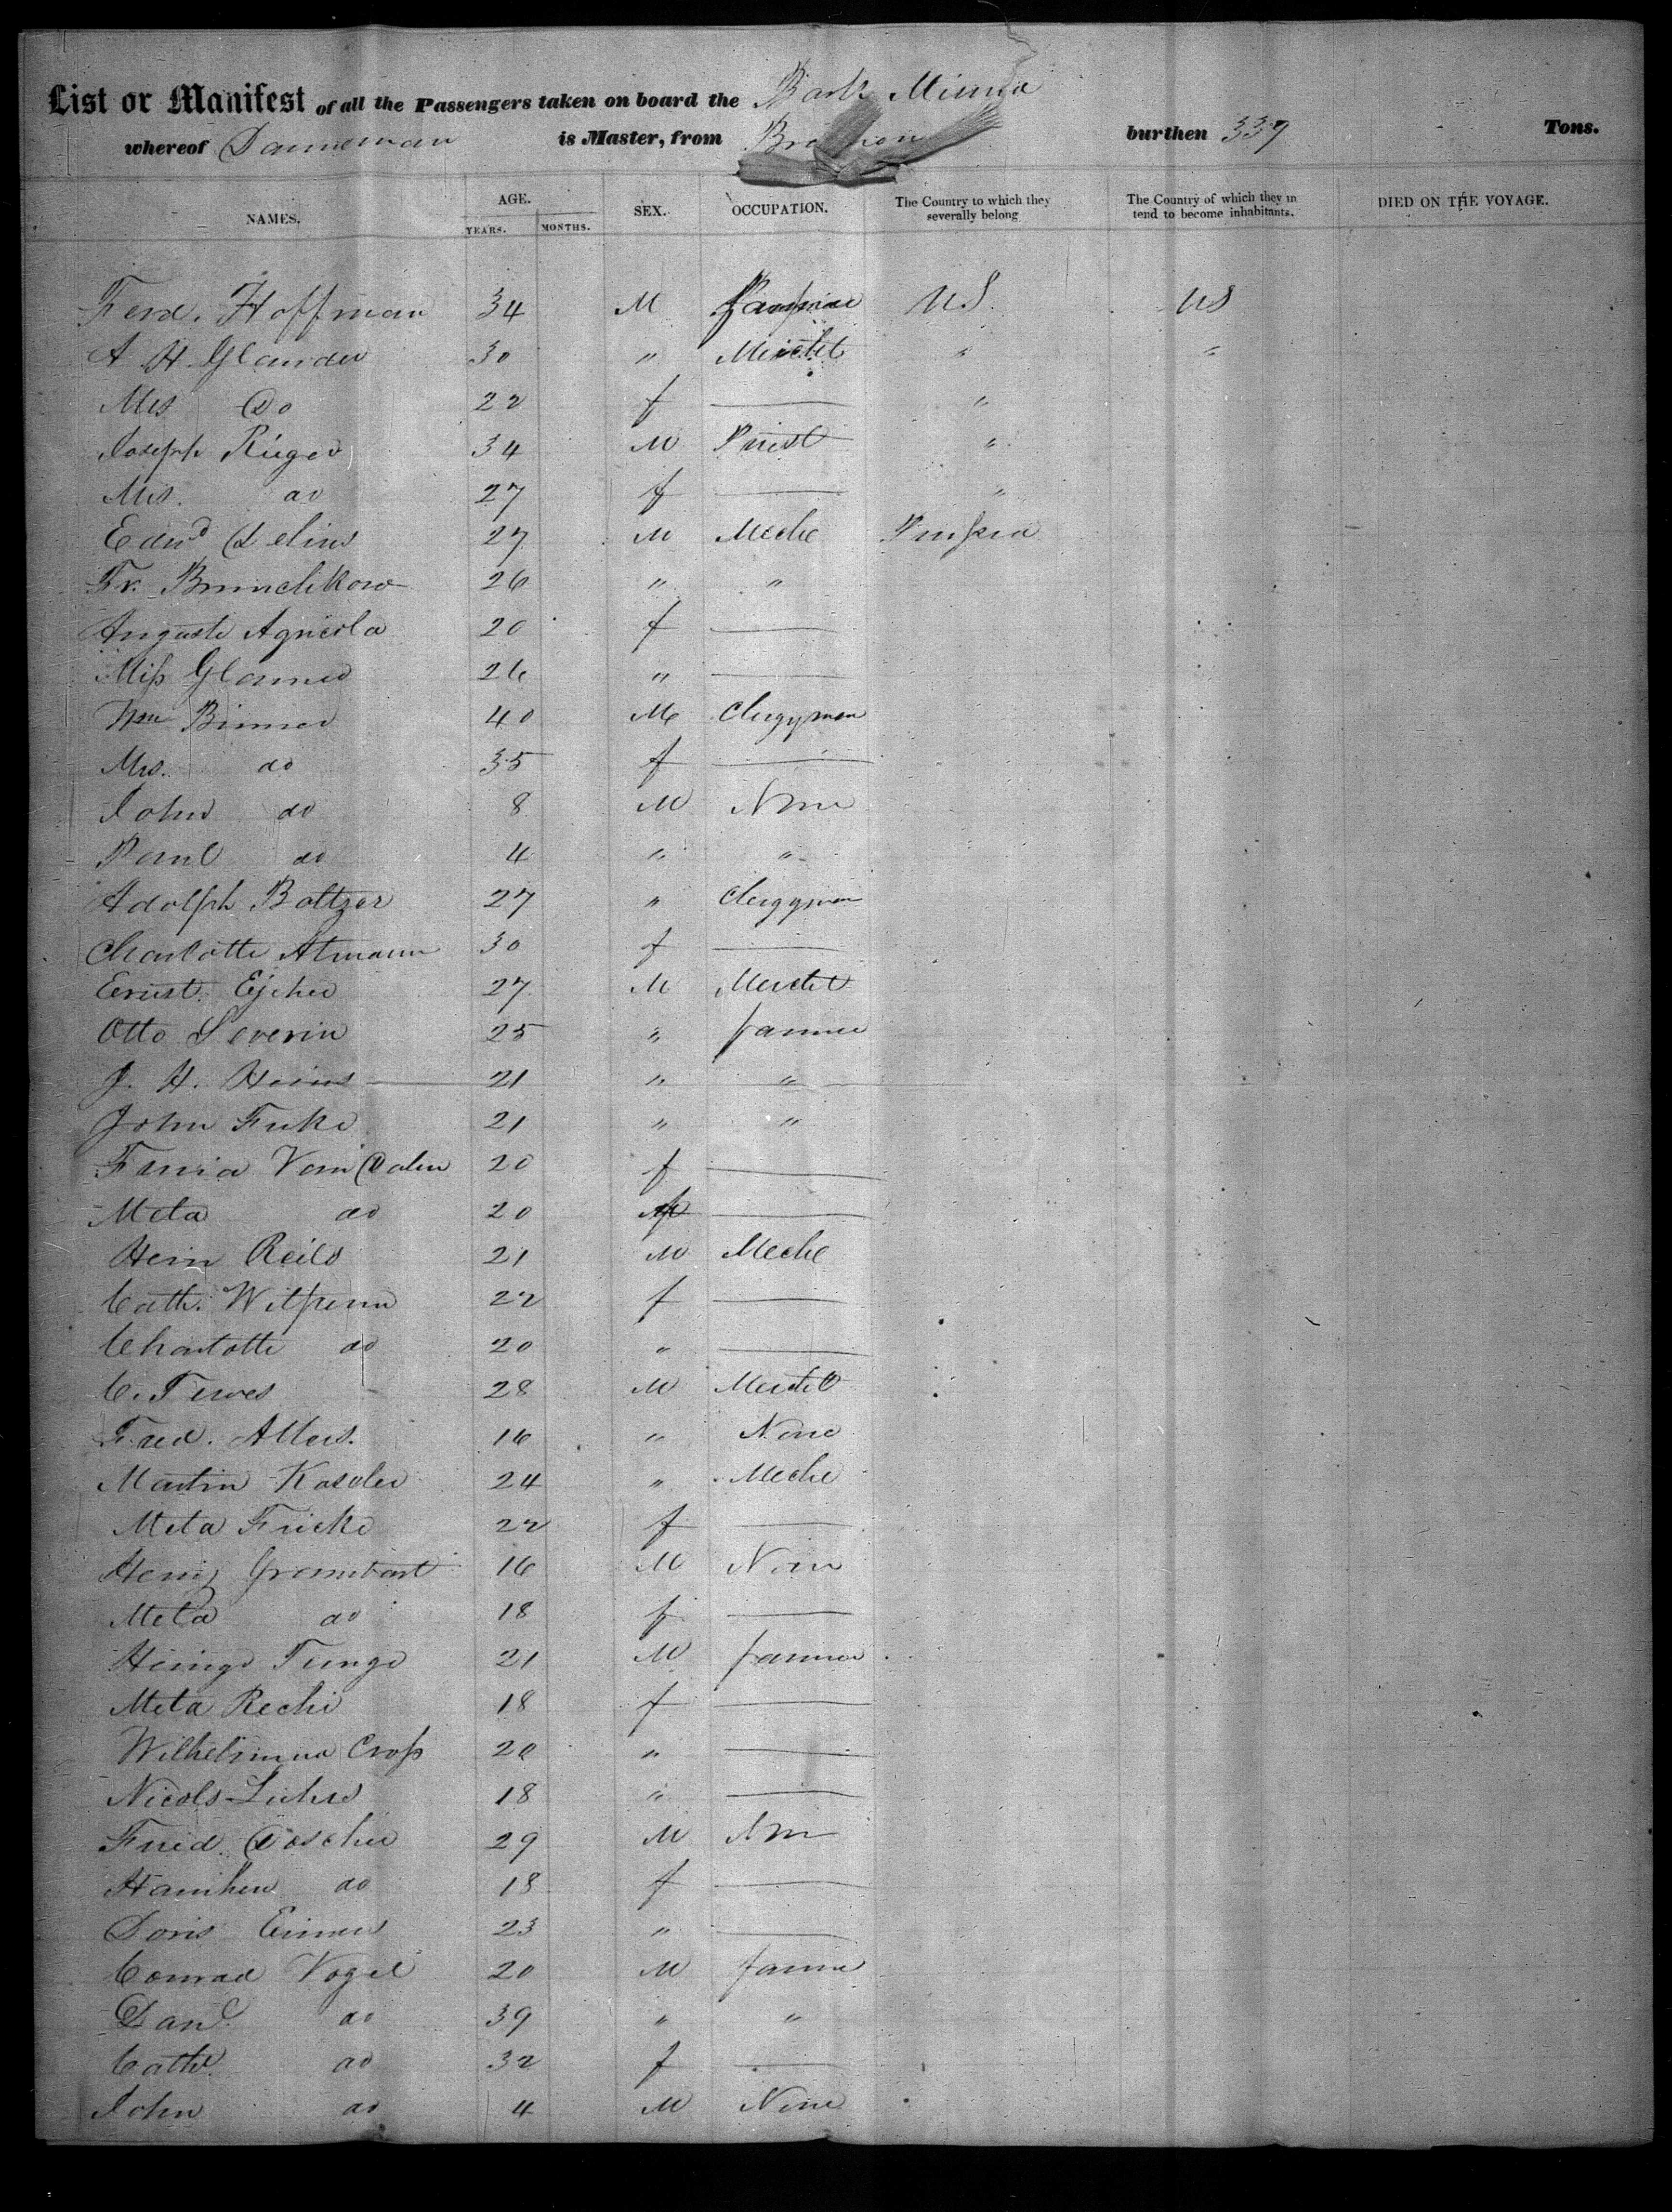 List or Manifest of all the Passengers taken on board the Bark Minna
whereof Danneman is Master, from burthen 339 Tons.
NAMES. AGE. YEARS. MONTHS. SEX. OCCUPATION. The Country to which they severally belong The Country of which they in tend to become inhabitants. DIED ON THE VOYAGE.
Ferd. Hoffman 34 M US. US
A H Glander 30 " Mercht " "
Mrs Do 22 f "
Joseph Rieger 34 M Priest "
Mrs. do 27 f "
Edwd Delius 27 M Mechc Prussia
Fr. 26 " "
Auguste Agricola 20 f
Miss 26 "
Wm Binner 40 M Clergyman
Mrs. do 35 f
John do 8 M None
Paul do 4 " "
Adolph Baltzer 27 " Clergyman
Charlotte Atmann 30 f
Ernst. 27 M Mercht
Otto Severin 25 " farmer
J. H. Heins 21 " "
John Fuke 21 " "
Von Dalen 20 f
Meta do 20 f
Hein Reils 21 M Mechc
Cath. 22 f
Charlotte do 20 "
C. Tewes 28 M Mercht
Fred. Allers. 16 " None
Martin Kaseler 24 " Mechc
Meta Fricke 22 f
Henry 16 M None
Meta do 18 f
21 M farmer
Meta Reche 18 f
Wilhelmina Cross 20 "
Nicols Luhrs 18 "
Fried. Doscher 29 M None
do 18 f
Doris Eimers 23 "
Conrad Vogel 20 M farmer
Danl. do 39 " "
Cathe. do 32 f
John do 4 M None